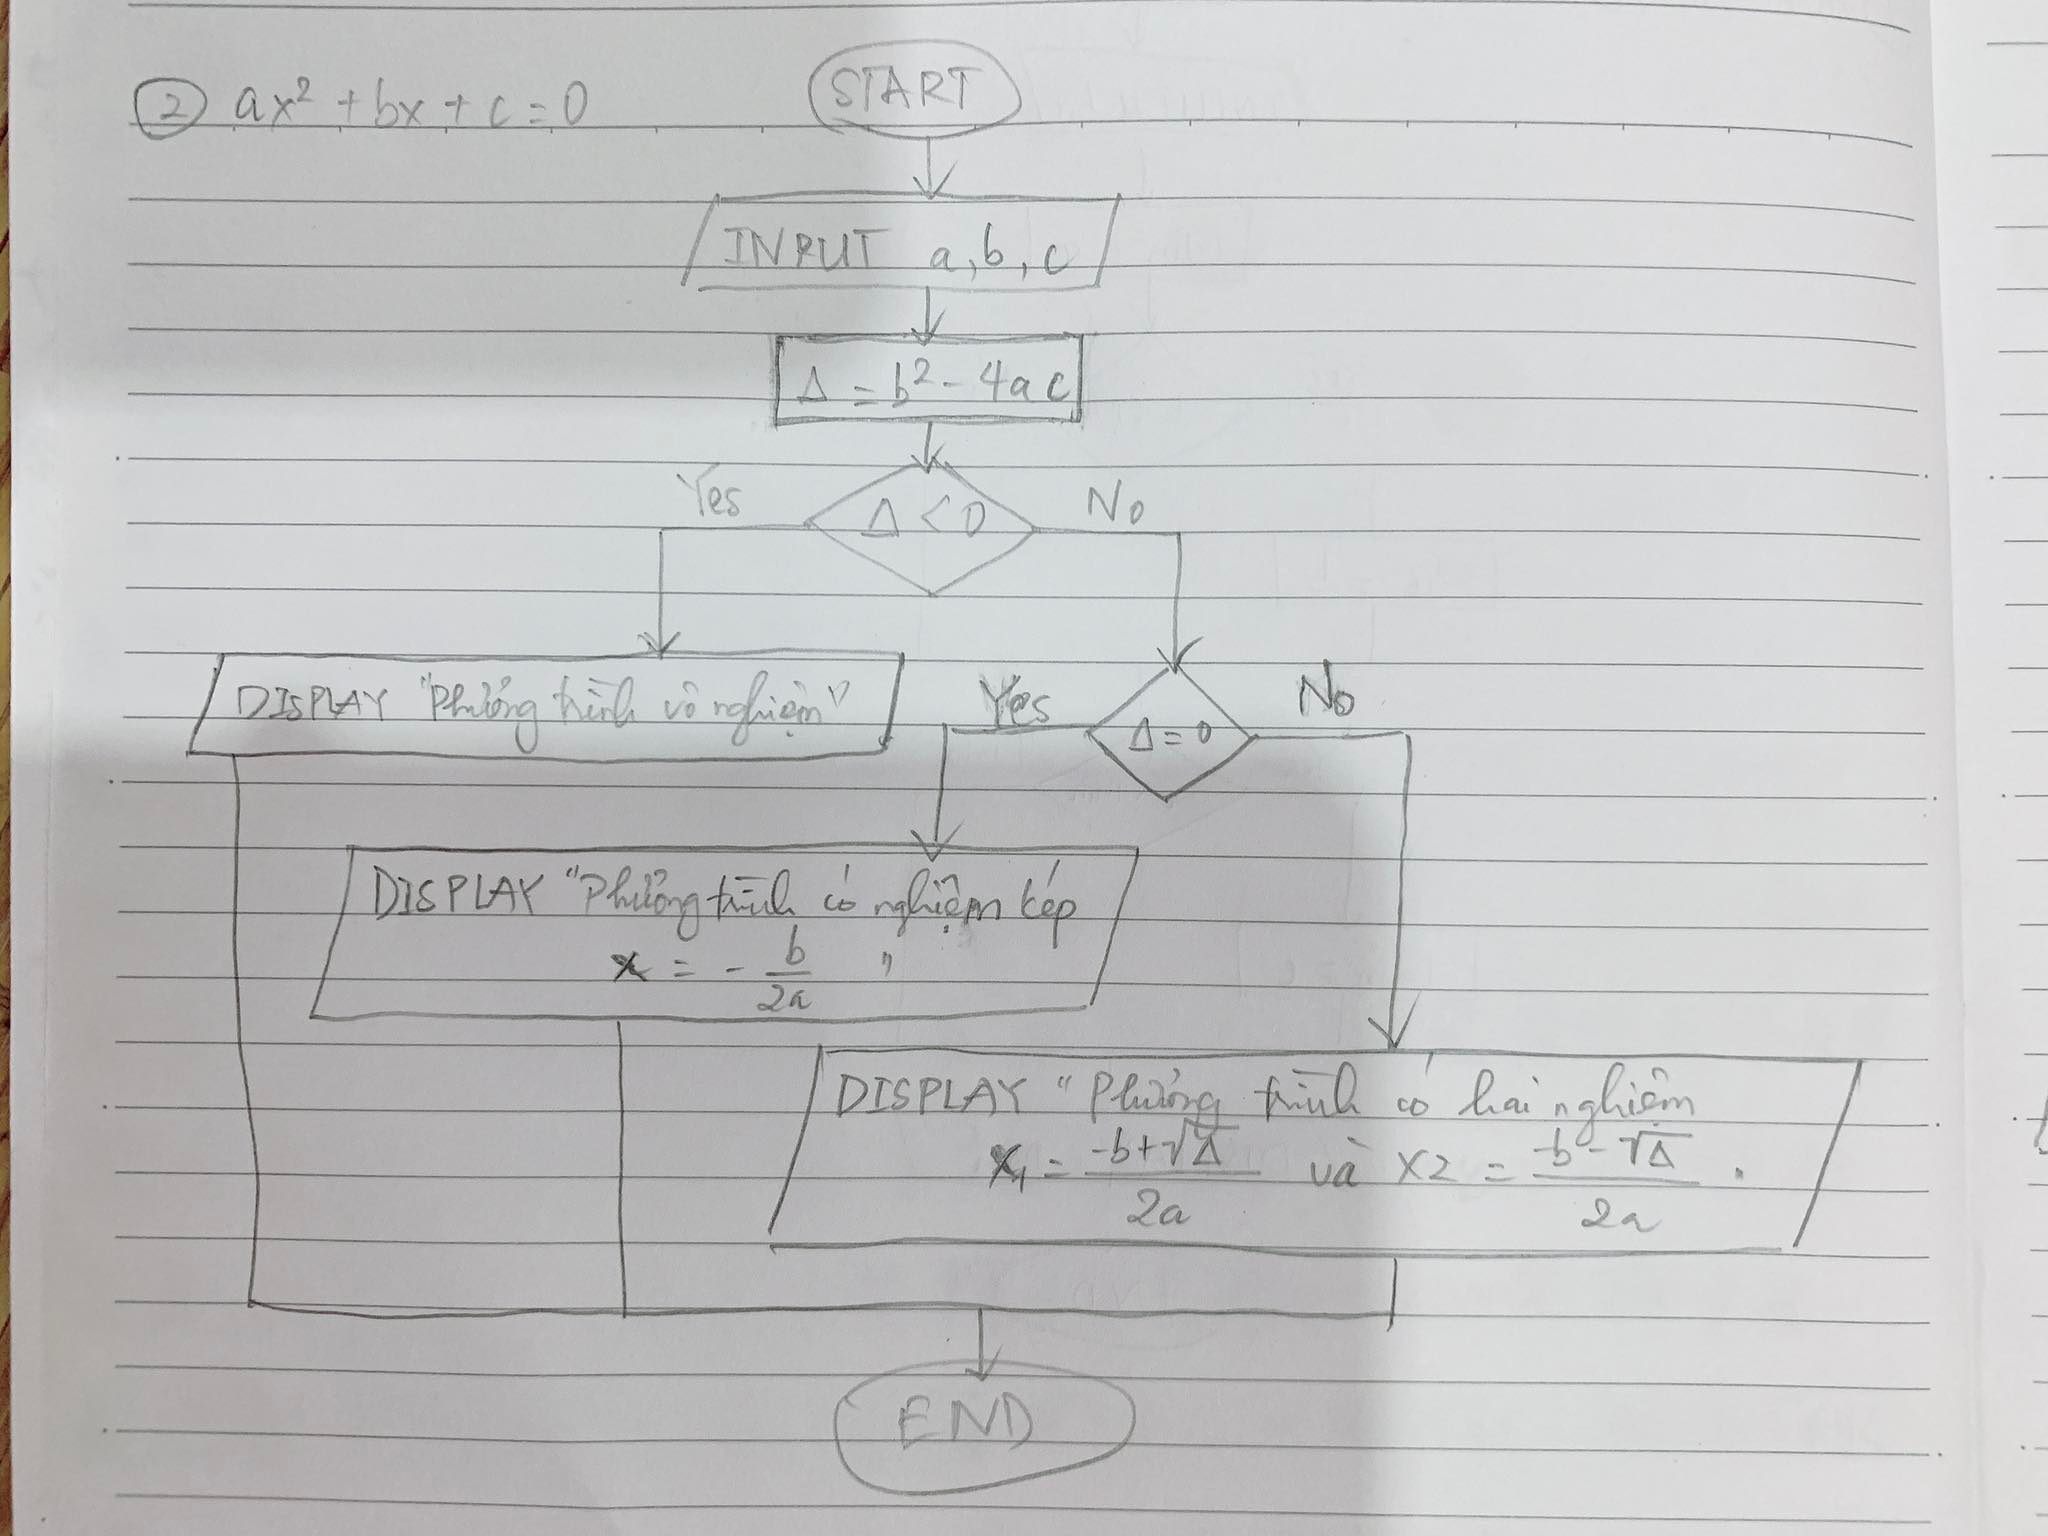 ② ax² + bx + c = 0
START
INPUT a, b, c
Δ = b² - 4ac
Yes
Δ < 0
No
DISPLAY "Phương trình vô nghiệm"
Yes
Δ = 0
No
DISPLAY "Phương trình có nghiệm kép
x = - b/2a "
DISPLAY "Phương trình có hai nghiệm
x₁ = -b+√Δ/2a và x2 = -b-√Δ/2a .
END